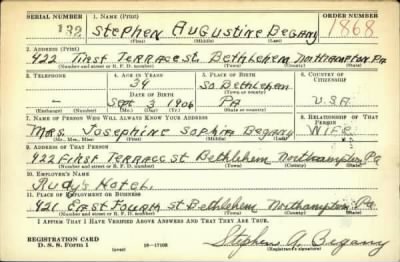 SERIAL NUMBER 1. NAME (Print) ORDER NUMBER
132 Stephen Augustine Begany 1868
(First) (Middle) (Last)
2. ADDRESS (Print)
422 First Terrace St. Bethlehem Northampton Pa
(Number and street or R. F. D. number) (Town) (County) (State)
3. TELEPHONE 4. AGE IN YEARS 5. PLACE OF BIRTH 6. COUNTRY OF CITIZENSHIP
34 So Bethlehem
— DATE OF BIRTH (Town or county)
— Sept 3 1906 Pa U.S.A.
(Exchange) (Number) (Mo.) (Day) (Yr.) (State or country)
7. NAME OF PERSON WHO WILL ALWAYS KNOW YOUR ADDRESS 8. RELATIONSHIP OF THAT PERSON
Mrs. Josephine Sophia Begany Wife
(Mr., Mrs., Miss) (First) (Middle) (Last)
9. ADDRESS OF THAT PERSON
422 First Terrace St Bethlehem Northampton Pa
(Number and street or R. F. D. number) (Town) (County) (State)
10. EMPLOYER'S NAME
Rudy's Hotel
11. PLACE OF EMPLOYMENT OR BUSINESS
421 East Fourth St Bethlehem Northampton Pa
(Number and street or R. F. D. number) (Town) (County) (State)
I AFFIRM THAT I HAVE VERIFIED ABOVE ANSWERS AND THAT THEY ARE TRUE.
REGISTRATION CARD
D. S. S. Form 1 (over) 16—17105 Stephen A. Begany
(Registrant's signature)